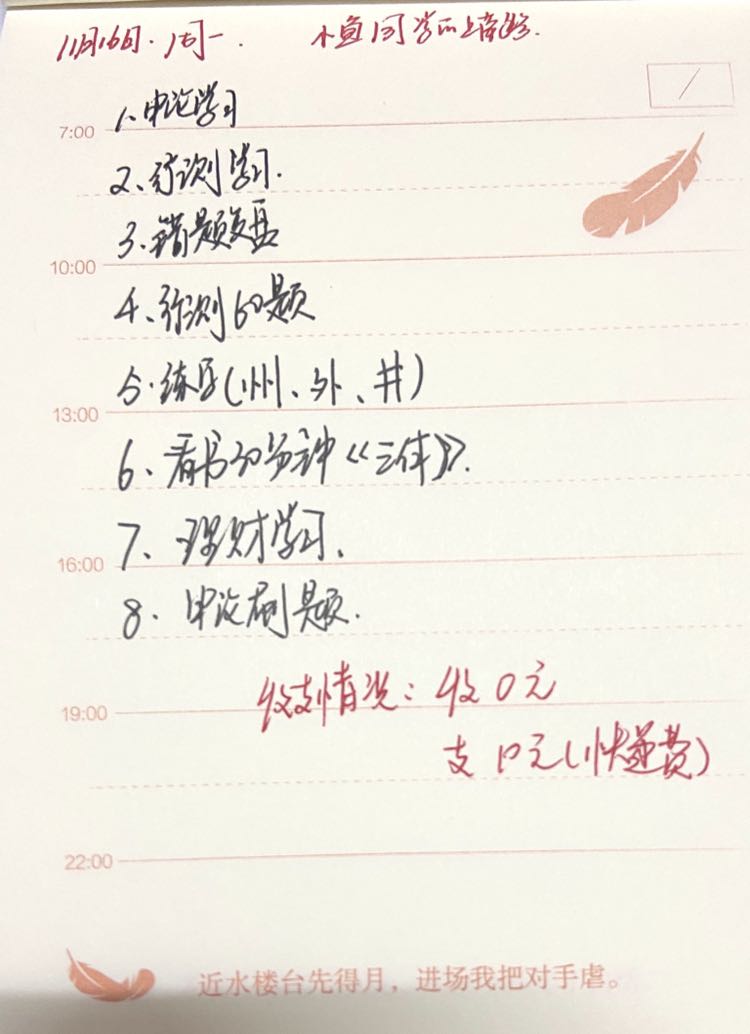 11月16日·周一. 小鱼同学的上岸路.
7:00 1、申论学习
2、行测学习.
3、错题复盘
10:00
4、行测60题
5·练字(州、外、井)
13:00
6、看书30分钟《三体》.
7、理财学习.
16:00
8.申论刷题.
收支情况:收0元
19:00
支10元(快递费)
22:00
近水楼台先得月，进场我把对手虐。